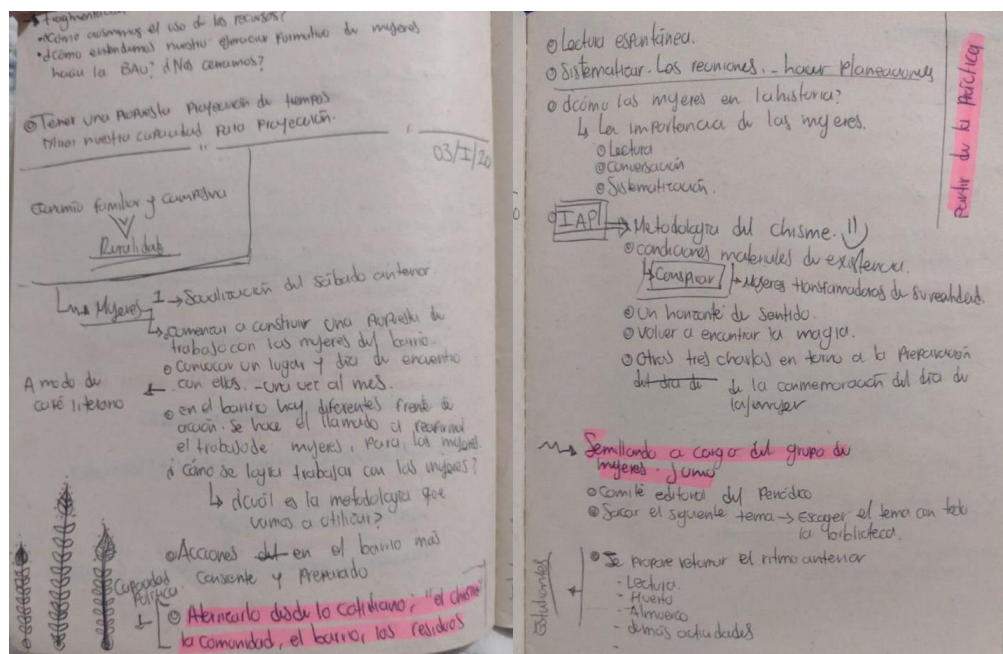 → fragmentación
• ¿Cómo asumimos el uso de los recursos?
• ¿Cómo entendemos nuestro ejercicio formativo de mujeres
hacia la BAU? ¿Nos cerramos?
Tener una propuesta proyección de tiempos
Mirar nuestra capacidad para proyección.
03/I/20
Economía familiar y campesina
Ruralidad
Mujeres I → Socialización del sábado anterior.
↳ Comenzar a construir una propuesta de
trabajo con las mujeres del barrio.
convocar un lugar y día de encuentro
con ellas. - una vez al mes.
A modo de
café literario
en el barrio hay diferentes frente de
acción. Se hace el llamado a reafirmar
el trabajo de mujeres, para las mujeres.
¿Cómo se logra trabajar con las mujeres?
↳ ¿cuál es la metodología que
vamos a utilizar?
Acciones del en el barrio más
consiente y preparado
Capacidad
Política
Aterrizarlo desde lo cotidiano; "el chisme"
la comunidad, el barrio, los residuos
Lectura espontánea.
Sistematizar. Las reuniones. - hacer planeaciones
¿cómo las mujeres en la historia?
↳ La importancia de las mujeres.
Lectura
Conversación
Sistematización.
Partir de la práctica
IAP → Metodología del chisme.
condiciones materiales de existencia.
↳ Conspirar ↳ Mujeres transformadoras de su realidad.
Un horizonte de sentido.
volver a encontrar la magia.
Otras tres charlas en torno a la preparación
del día de de la conmemoración del día de
la mujer
Semillando a cargo del grupo de
mujeres. Junio
Comité editorial del periódico
Sacar el siguiente tema → Escoger el tema con toda
la biblioteca.
Estudiantes
Se propone retomar el ritmo anterior
- Lectura.
- Huerta
- Almuerzo
- demás actividades